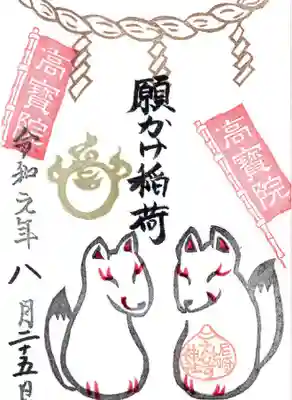 願かけ稲荷
高寳院
高寳院
令和元年八月二十五日